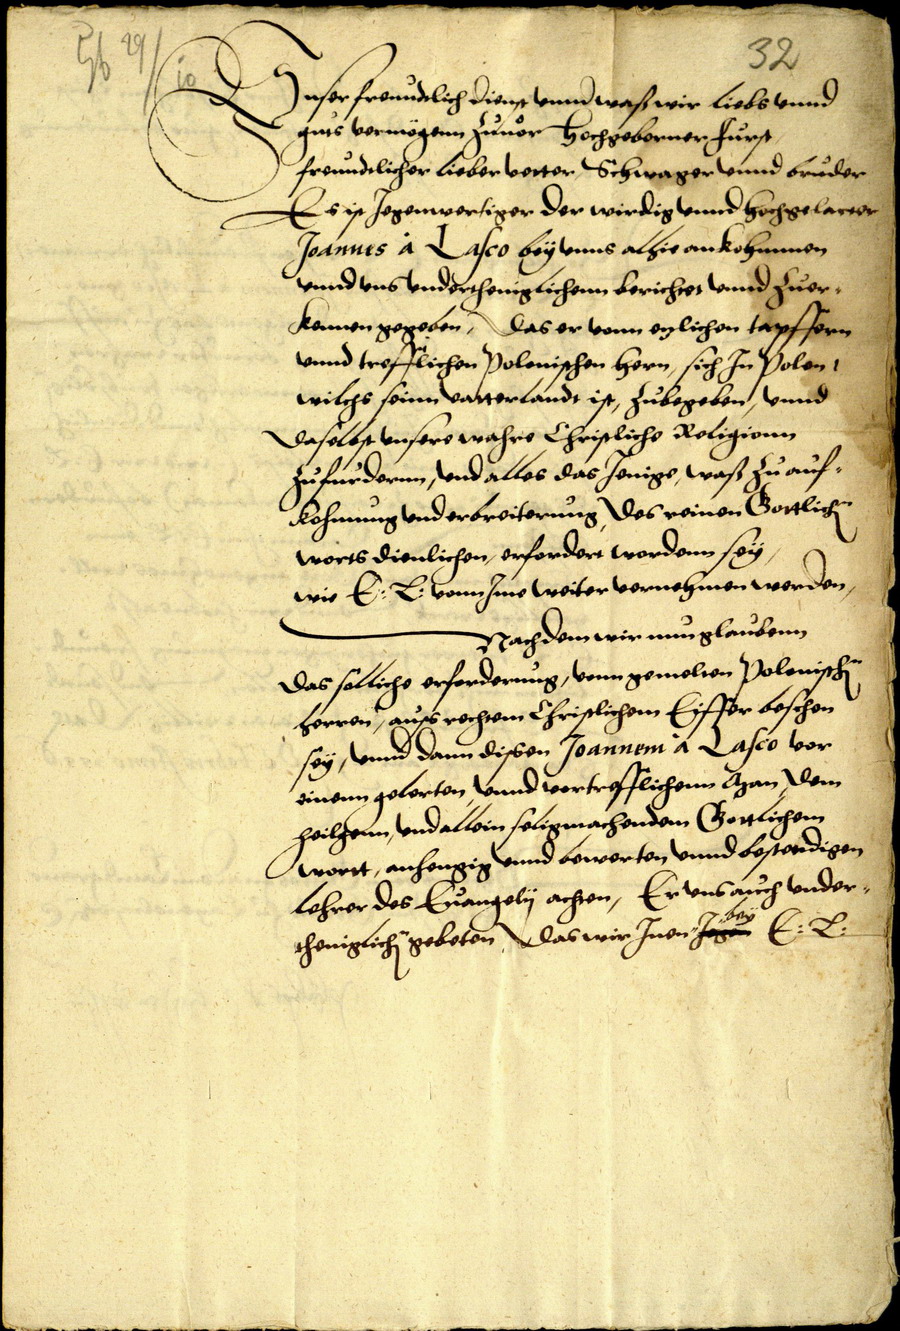 32
Unser freundtlich dienst unnd waß wir liebs unnd
guts vermögenn Zuuor Hochgeborner Furst
freundtlicher lieber vetter Schwager unnd bruder
Es ist Jegenwertiger der wirdig unnd hochgelarter
Joannes à Lasco bey unns alhie ankohmmen
unnd uns undertheniglichenn berichtet unnd Zuer-
kennen gegeben, Das er vonn etzlichen tapffern
unnd trefflichen Polenischen hern, sich In Polen
wilchs seinn vatterlandt ist, Zubegeben, unnd
daselbst unsere wahre Christliche Religionn
Zufurdernn, und alles das Jenige, waß Zu auf-
kohmung und erbreiterung, des reinen Gottlich
worts dienlichen, erfordert wordenn sey,
wie E: L: vonn Ime weiter vernehmen werden,
Nachdem wir nun glaubenn
das solliche erforderung, vonn gemelten Polenisch
herren, auss rechtem Christlichem Eiffer beschen
sey, unnd dann dissen Joannem à Lasco vor
einenn gelerten, unnd vortrefflichenn Man, dem
heilgenn, und allein seligmachendem Gottlichem
wortt, anhengig unnd bewerten unnd bestendigen
lehrer des Euangelij achten, Er uns auch under-
theniglich gebeten, Das wir Inen bey E: L: